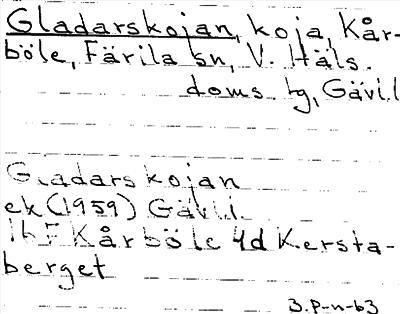 Gladarskojan, koja, Kår-
böle, Färila sn, V. Häls.
doms. tg, Gävl.l
Gladarskojan
ek (1959) Gävl.l.
Kårböle 4d Kersta-
berget
3.P-n-63